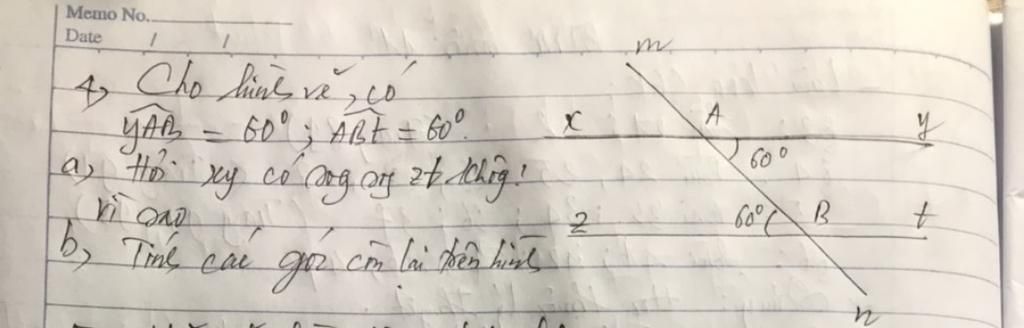 Memo No.
Date / /
4, Cho hình vẽ, có
yAB = 60°; ABt = 60°.
a, Hỏi xy có song song zt không!
Vì sao
b, Tính các góc còn lại trên hình
m
x A y
60°
z 60° B t
n